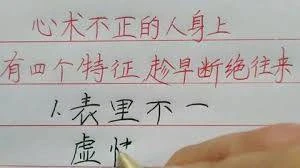 心术不正的人身上
有四个特征,趁早断绝往来
1.表里不一
虚